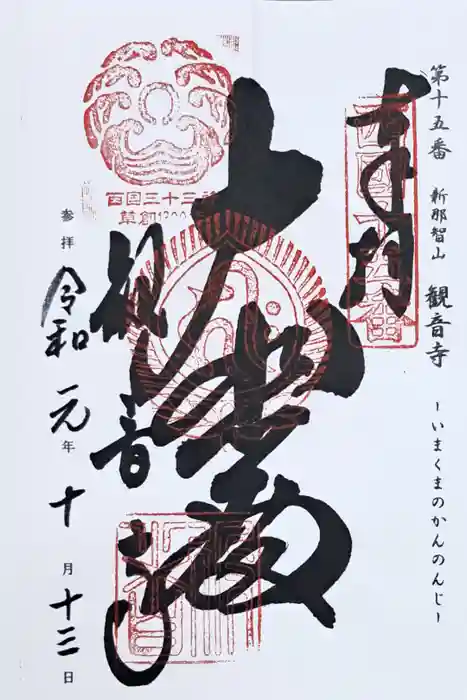 第十五番 新那智山 観音寺 -いまくまのかんのんじ-
奉拝
西国十五番
大悲殿
観音寺
西国三十三所
草創1300年
参拝 令和元年十月十三日